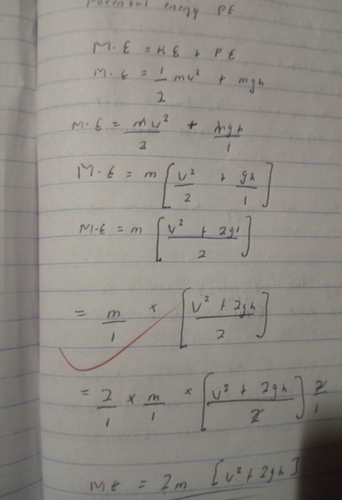 Potential energy PE
M.E = KE + PE
M.E = 1/2 mv² + mgh
M.E = mv²/2 + mgh/1
M.E = m [v²/2 + gh/1]
M.E = m [v² + 2gh/2]
= m/1 × [v² + 2gh/2]
= 2/1 × m/1 × [v² + 2gh/2] 2/1
ME = 2m [v² + 2gh]